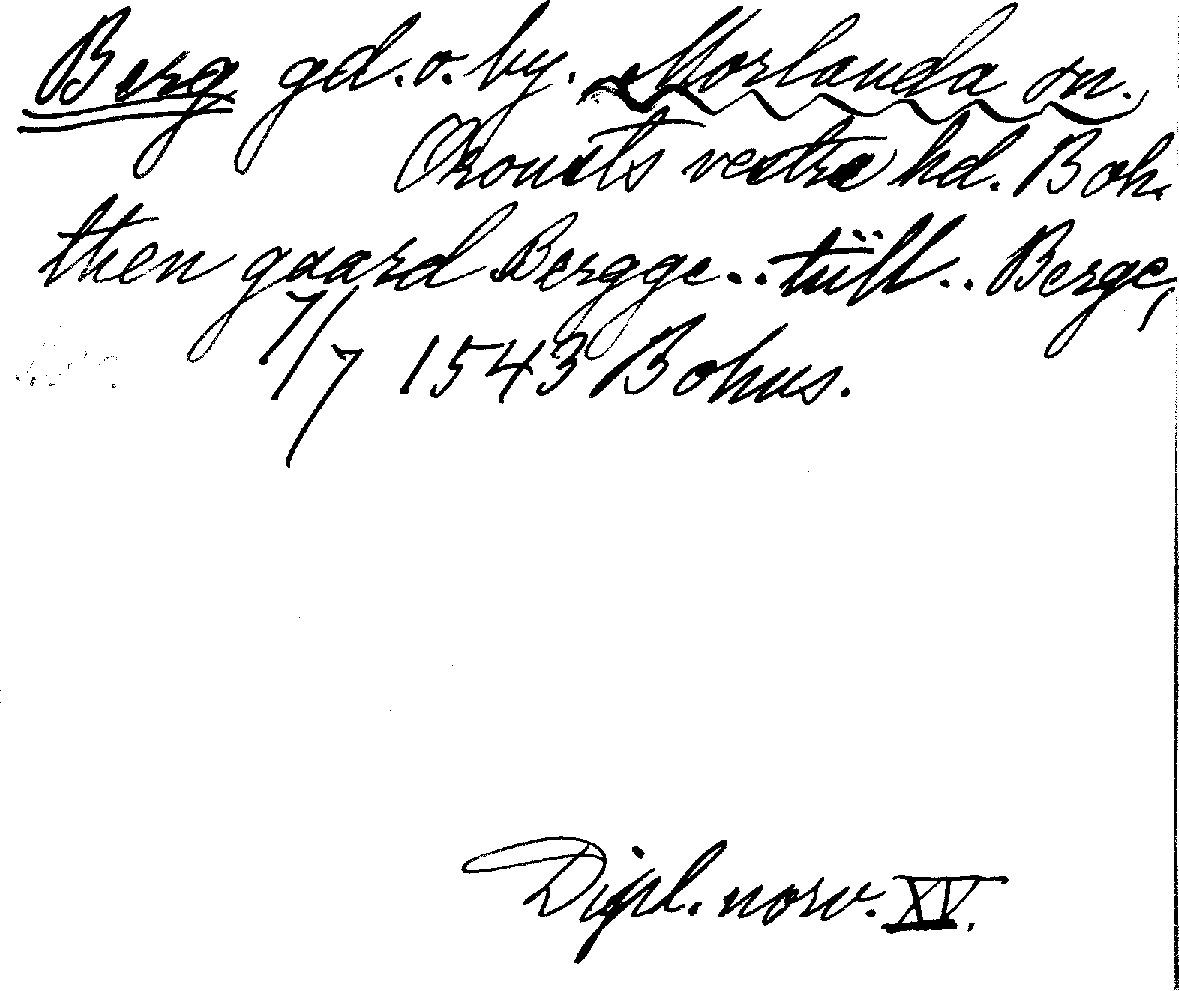 Berg gd. o. by. Morlanda sn.
Orousts vestra hd. Boh.
then gaard Bergge.. tüll.. Berge,
7/7 1543 Bohus.
Dipl. norv. XV.